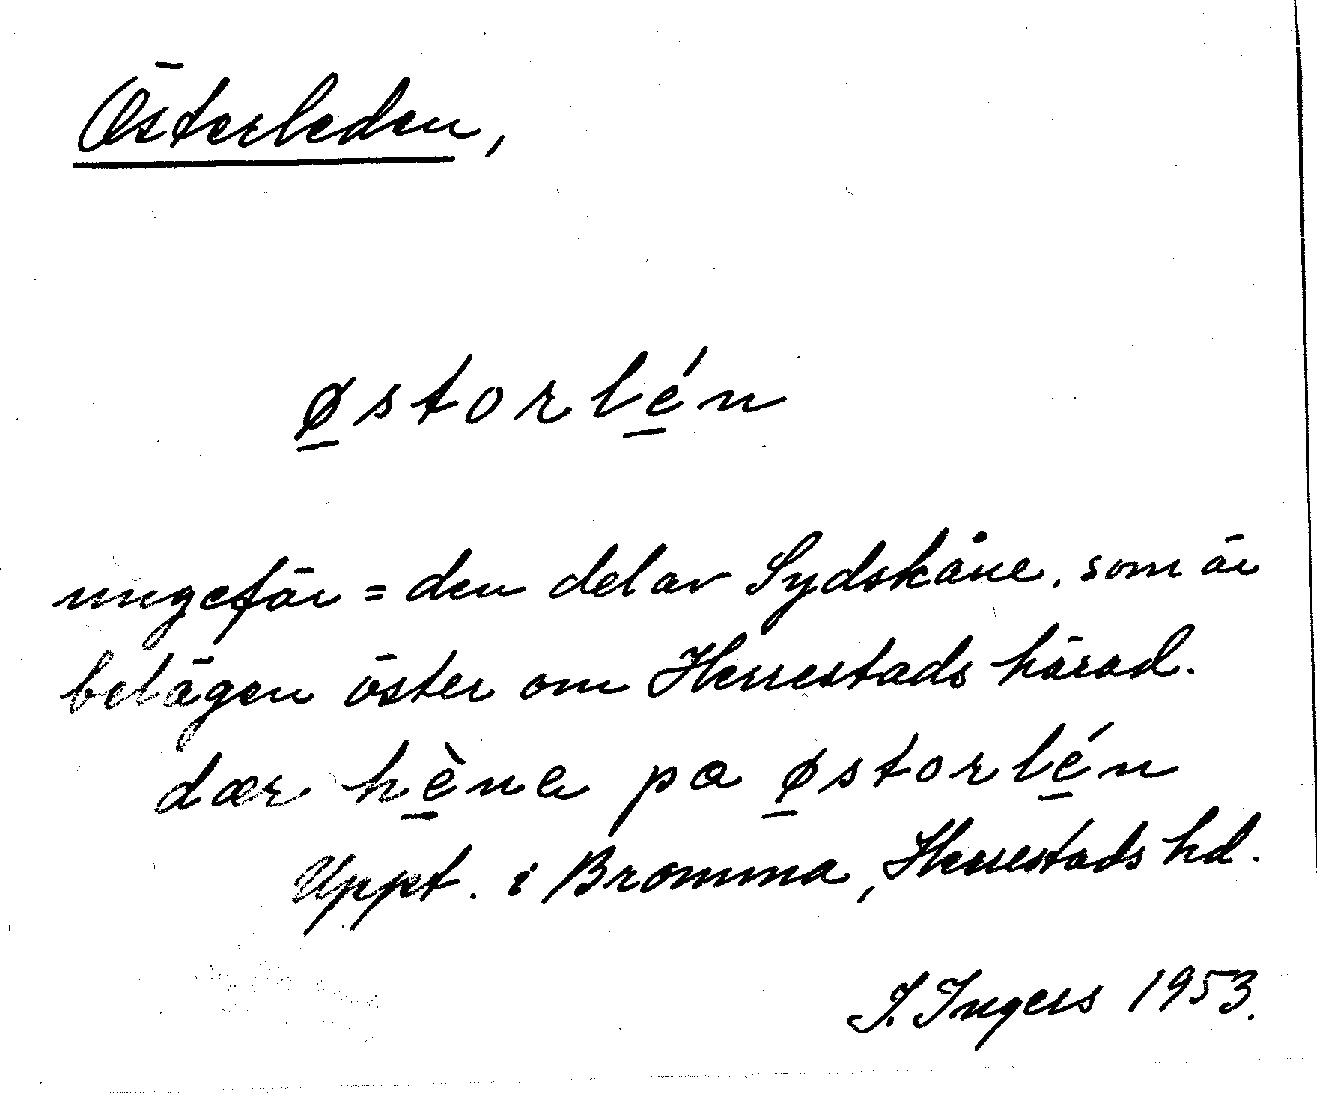 Österleden,
østorlén
ungefär = den del av Sydskåne, som är
belägen öster om Herrestads härad.
dær hèna pa østorlén
Uppt. i Bromma, Herrestads hd.
I. Ingers 1953.